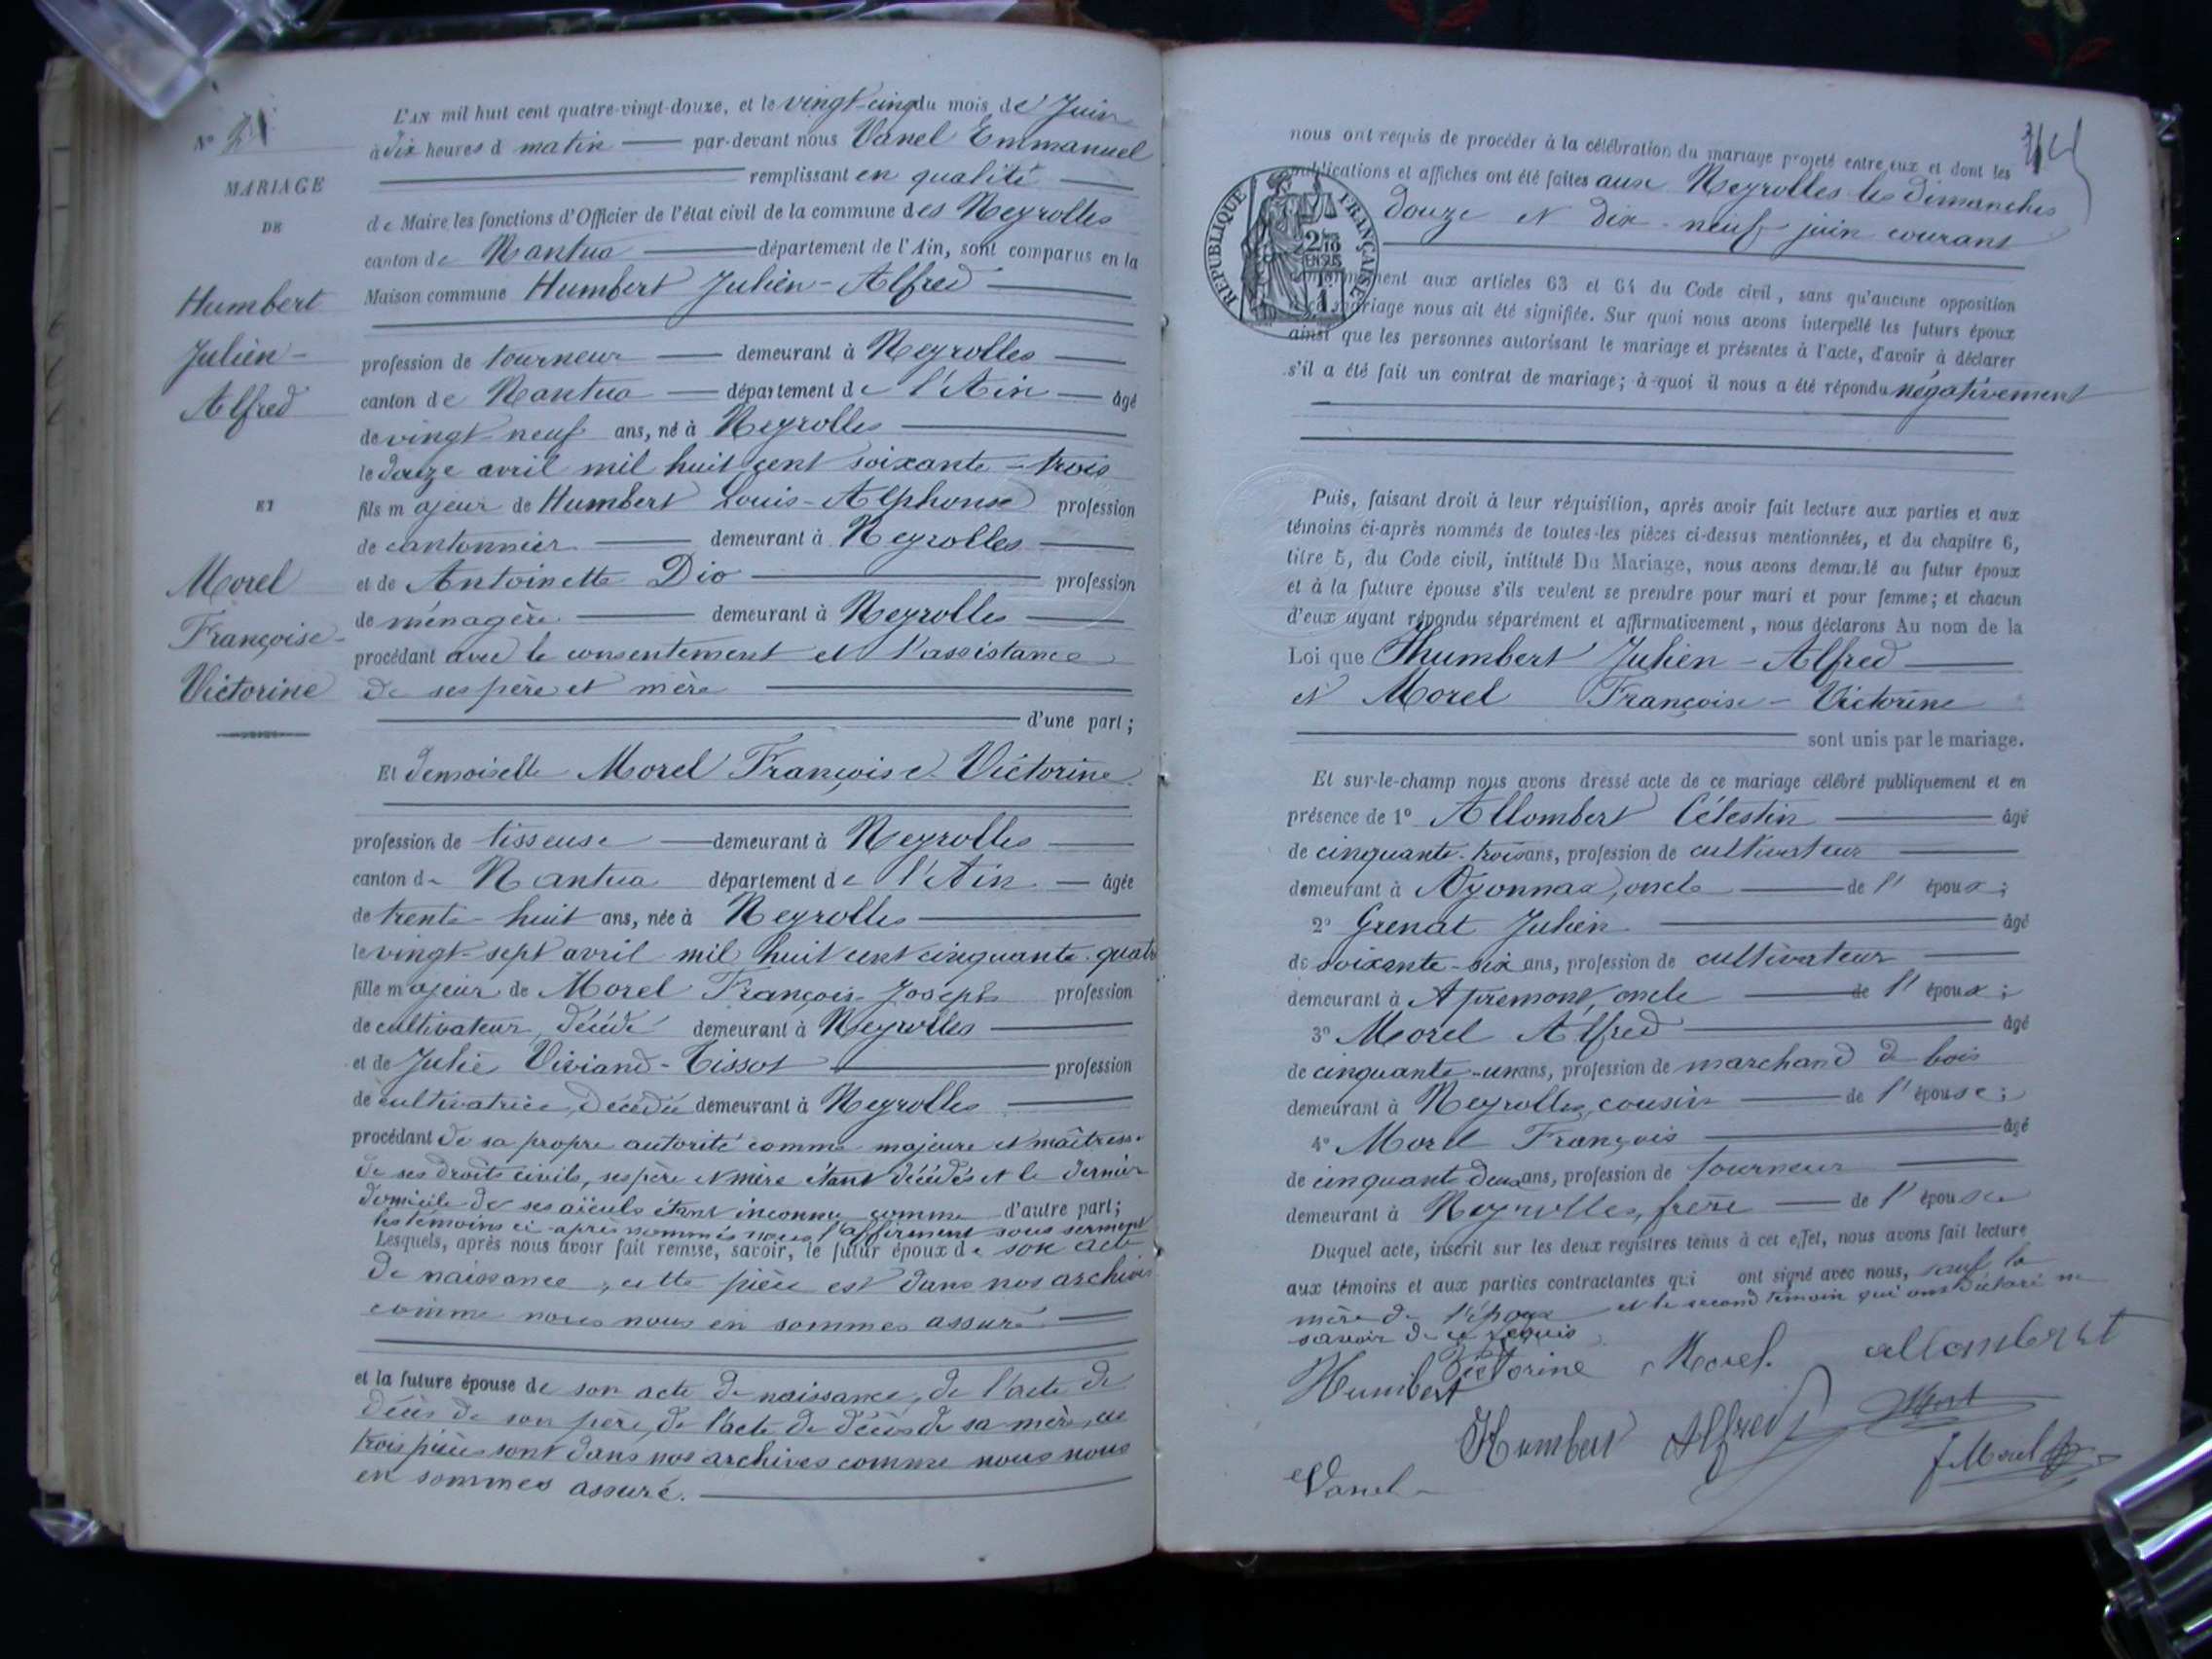 L'AN mil huit cent quatre-vingt-douze, et le vingt-cinq du mois de Juin
N° 21
à dix heures d matin par-devant nous Vanel Emmanuel
remplissant en qualité
MARIAGE
de Maire les fonctions d'Officier de l'état civil de la commune des Neyrolles
DE
canton de Nantua département de l'Ain, sont comparus en la
Maison commune Humbert Julien-Alfred
Humbert
Julien-
Alfred
profession de tourneur demeurant à Neyrolles
canton de Nantua département de l'Ain âgé
de vingt neuf ans, né à Neyrolles
le douze avril mil huit cent soixante-trois
ET
fils majeur de Humbert Louis-Alphonse profession
de cantonnier demeurant à Neyrolles
Morel
Françoise-
Victorine
et de Antoinette Dio profession
de ménagère demeurant à Neyrolles
procédant avec le consentement et l'assistance
de ses père et mère
d'une part;
Et demoiselle Morel Françoise-Victorine
profession de tisseuse demeurant à Neyrolles
canton de Nantua département de l'Ain âgée
de trente-huit ans, née à Neyrolles
le vingt-sept avril mil huit cent cinquante-quatre
fille majeur de Morel François Joseph profession
de cultivateur, décédé demeurant à Neyrolles
et de Julie Viviand-Tissot profession
de cultivatrice, décédée demeurant à Neyrolles
procédant de sa propre autorité comme majeure et maîtresse
de ses droits civils, ses père et mère étant décédés et le dernier
domicile de ses aïeuls étant inconnu comme d'autre part;
les témoins ci-après nommés nous l'affirment sous serment
Lesquels, après nous avoir fait remise, savoir, le futur époux de son acte
de naissance, cette pièce est dans nos archives
comme nous nous en sommes assuré
et la future épouse de son acte de naissance, de l'acte de
décès de son père, de l'acte de décès de sa mère, ces
trois pièces sont dans nos archives comme nous nous
en sommes assuré.
nous ont requis de procéder à la célébration du mariage projeté entre eux et dont les
publications et affiches ont été faites aux Neyrolles les dimanches
douze et dix-neuf juin courant
RÉPUBLIQUE FRANÇAISE
2/10 EN SUS
conformément aux articles 63 et 64 du Code civil, sans qu'aucune opposition
à ce mariage nous ait été signifiée. Sur quoi nous avons interpellé les futurs époux
ainsi que les personnes autorisant le mariage et présentes à l'acte, d'avoir à déclarer
s'il a été fait un contrat de mariage; à quoi il nous a été répondu négativement
Puis, faisant droit à leur réquisition, après avoir fait lecture aux parties et aux
témoins ci-après nommés de toutes les pièces ci-dessus mentionnées, et du chapitre 6,
titre 5, du Code civil, intitulé Du Mariage, nous avons demandé au futur époux
et à la future épouse s'ils veulent se prendre pour mari et pour femme; et chacun
d'eux ayant répondu séparément et affirmativement, nous déclarons Au nom de la
Loi que Humbert Julien-Alfred
et Morel Françoise-Victorine
sont unis par le mariage.
Et sur-le-champ nous avons dressé acte de ce mariage célébré publiquement et en
présence de 1° Allombert Célestin âgé
de cinquante-trois ans, profession de cultivateur
demeurant à Oyonnax, oncle de l'époux;
2° Grenat Julien âgé
de soixante-six ans, profession de cultivateur
demeurant à Apremont, oncle de l'époux;
3° Morel Alfred âgé
de cinquante-un ans, profession de marchand de bois
demeurant à Neyrolles, cousin de l'épouse;
4° Morel François âgé
de cinquante deux ans, profession de tourneur
demeurant à Neyrolles, frère de l'épouse
Duquel acte, inscrit sur les deux registres tenus à cet effet, nous avons fait lecture
aux témoins et aux parties contractantes qui ont signé avec nous, sauf la
mère de l'époux et le second témoin qui ont déclaré ne
savoir de ce requis
Humbert Victorine Morel. allombert
Humbert Alfred
Vanel
f Morel